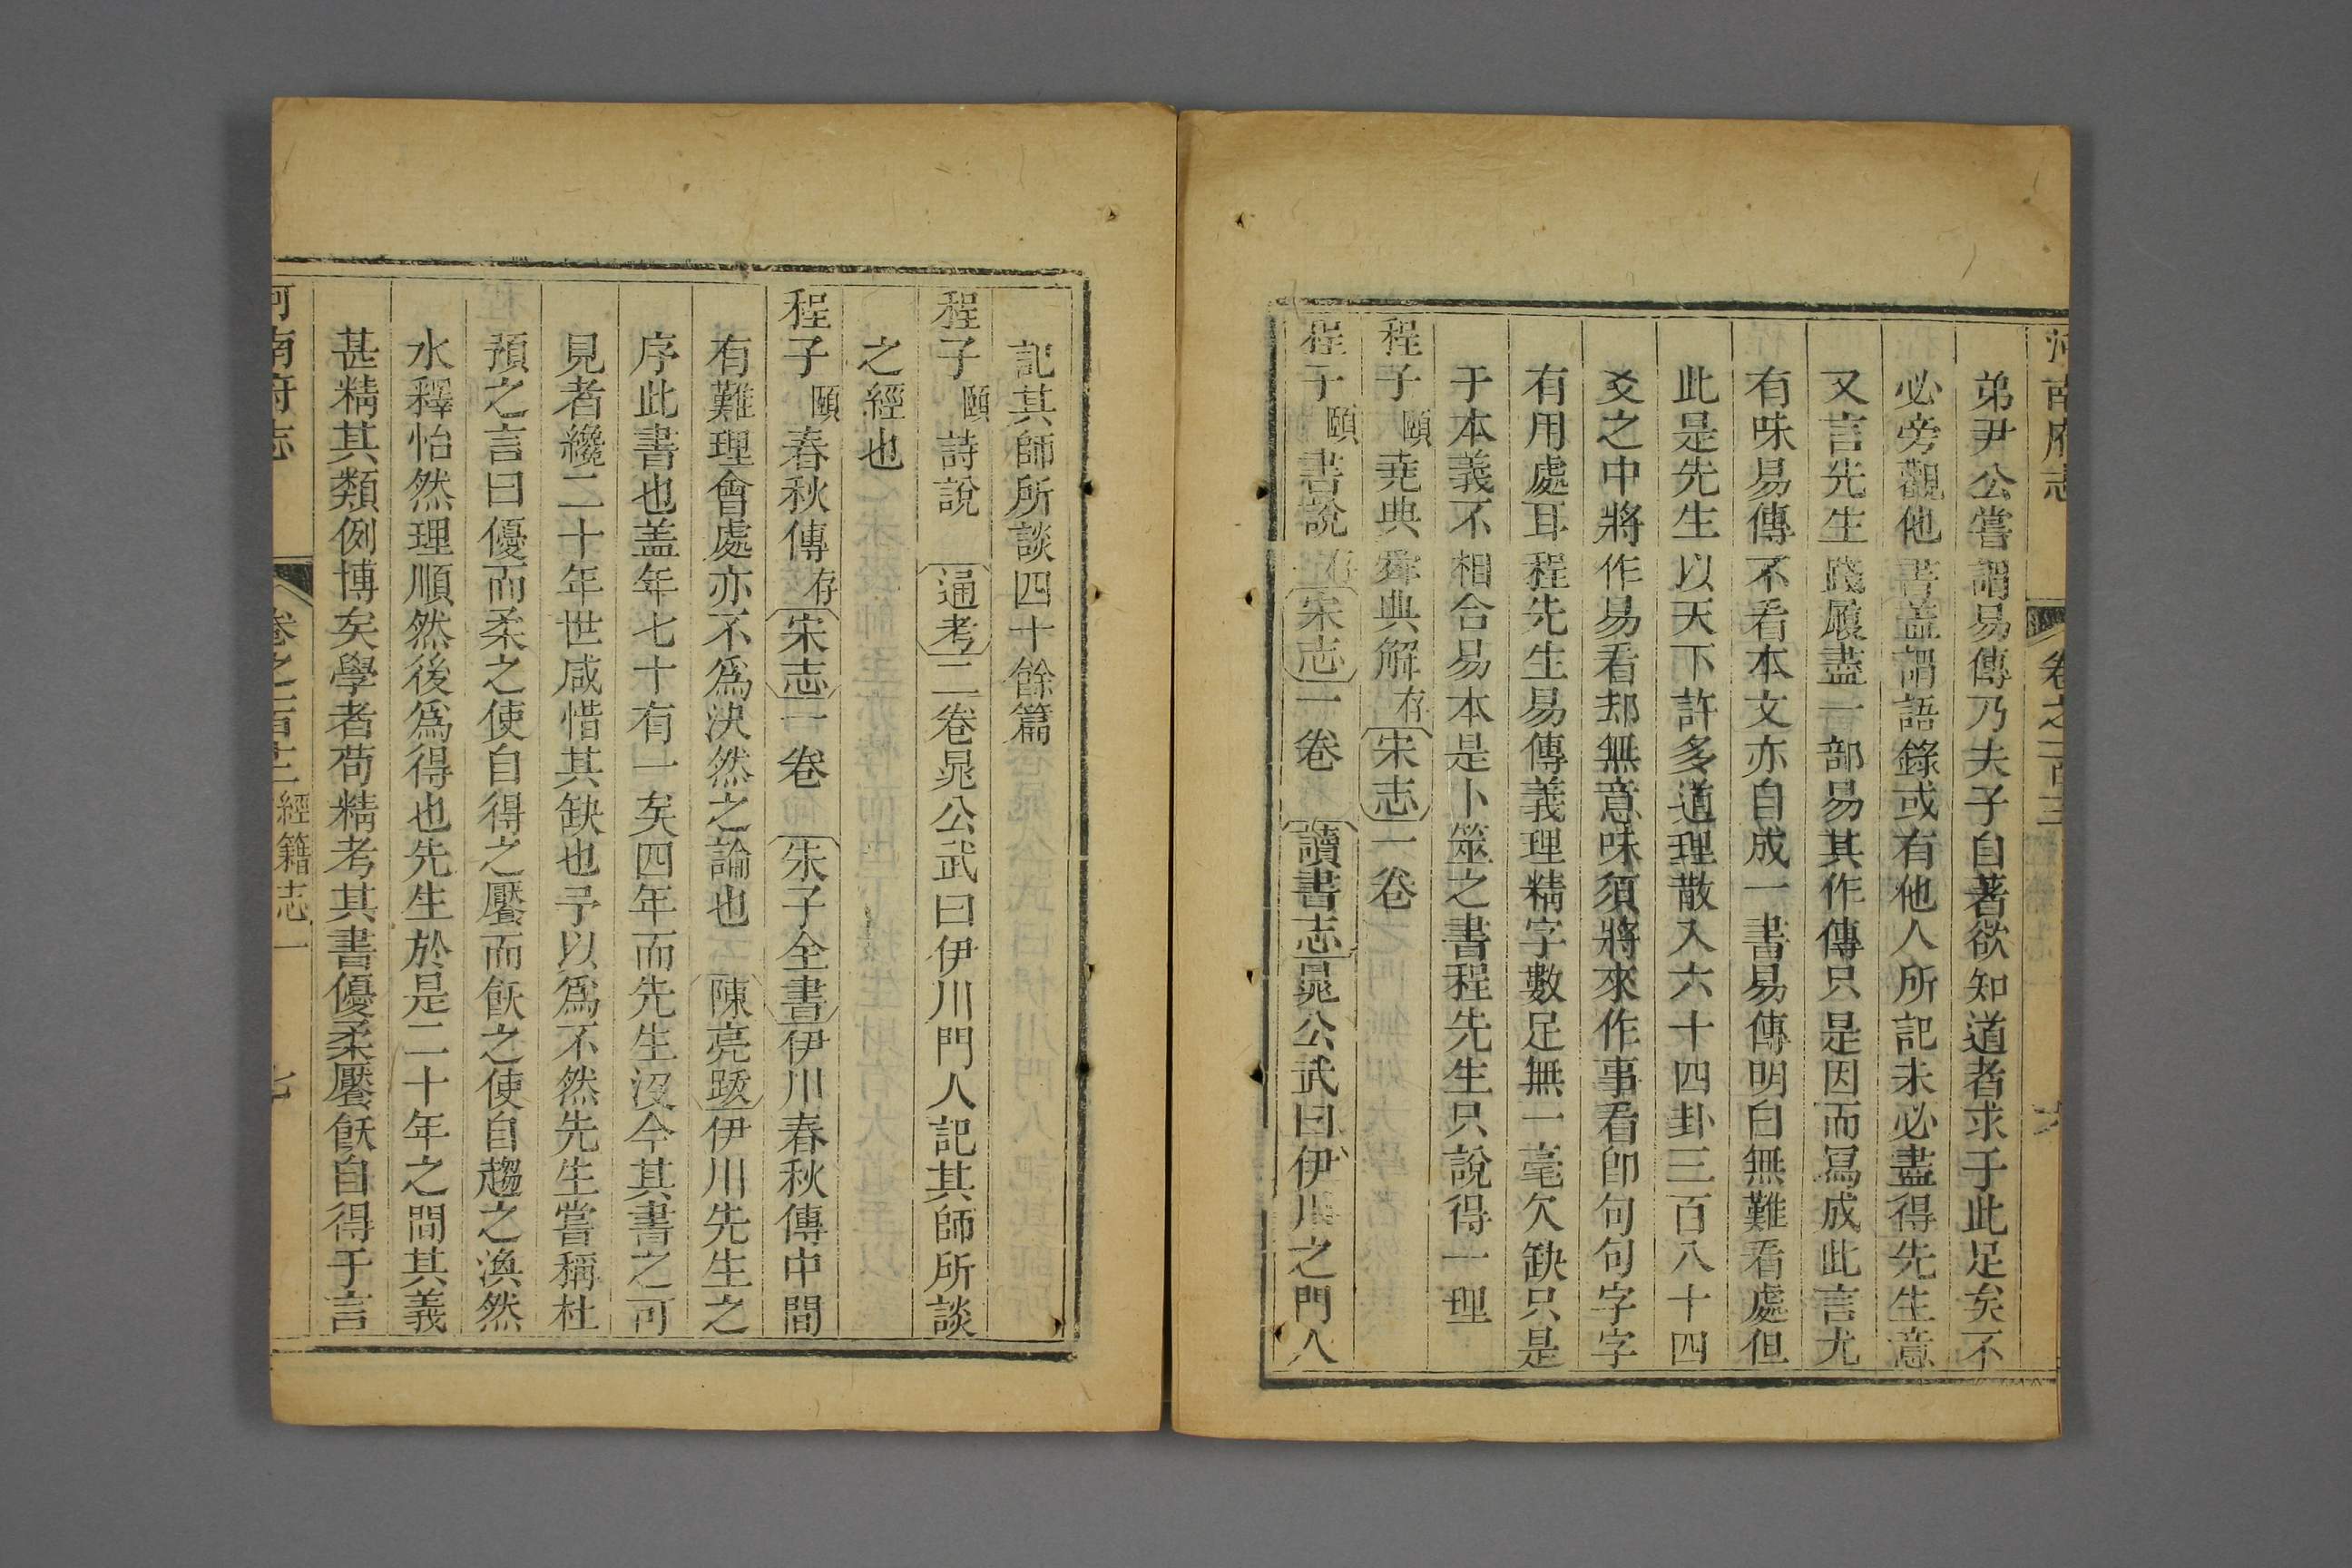 弟尹公嘗謂易傳乃夫子自著欲知道者求于此足矣不
必旁觀他書蓋謂語錄或有他人所記未必盡得先生意
又言先生踐履盡一部易其作傳只是因而寫成此言尤
有味易傳不看本文亦自成一書易傳明白無難看處但
此是先生以天下許多道理散入六十四卦三百八十四
爻之中將作易看却無意味須將來作事看卽句句字字
有用處耳程先生易傳義理精字數足無一毫欠缺只是
于本義不相合易本是卜筮之書程先生只說得一理
程子頤堯典舜典解存宋志一卷
程子頤書說存宋志一卷 讀書志晁公武曰伊川之門人
記其師所談四十餘篇
程子頤詩說 通考二卷晁公武曰伊川門人記其師所談
之經也
程子頤春秋傳存宋志一卷 朱子全書伊川春秋傳中間
有難理會處亦不爲決然之論也 陳亮跋伊川先生之
序此書也盖年七十有一矣四年而先生沒今其書之可
見者纔二十年世咸惜其缺也予以爲不然先生嘗稱杜
預之言曰優而柔之使自得之饜而飫之使自趨之渙然
冰釋怡然理順然後爲得也先生於是二十年之間其義
甚精其類例博矣學者苟精考其書優柔饜飫自得于言
河南府志 卷之一百三 經籍志一 七